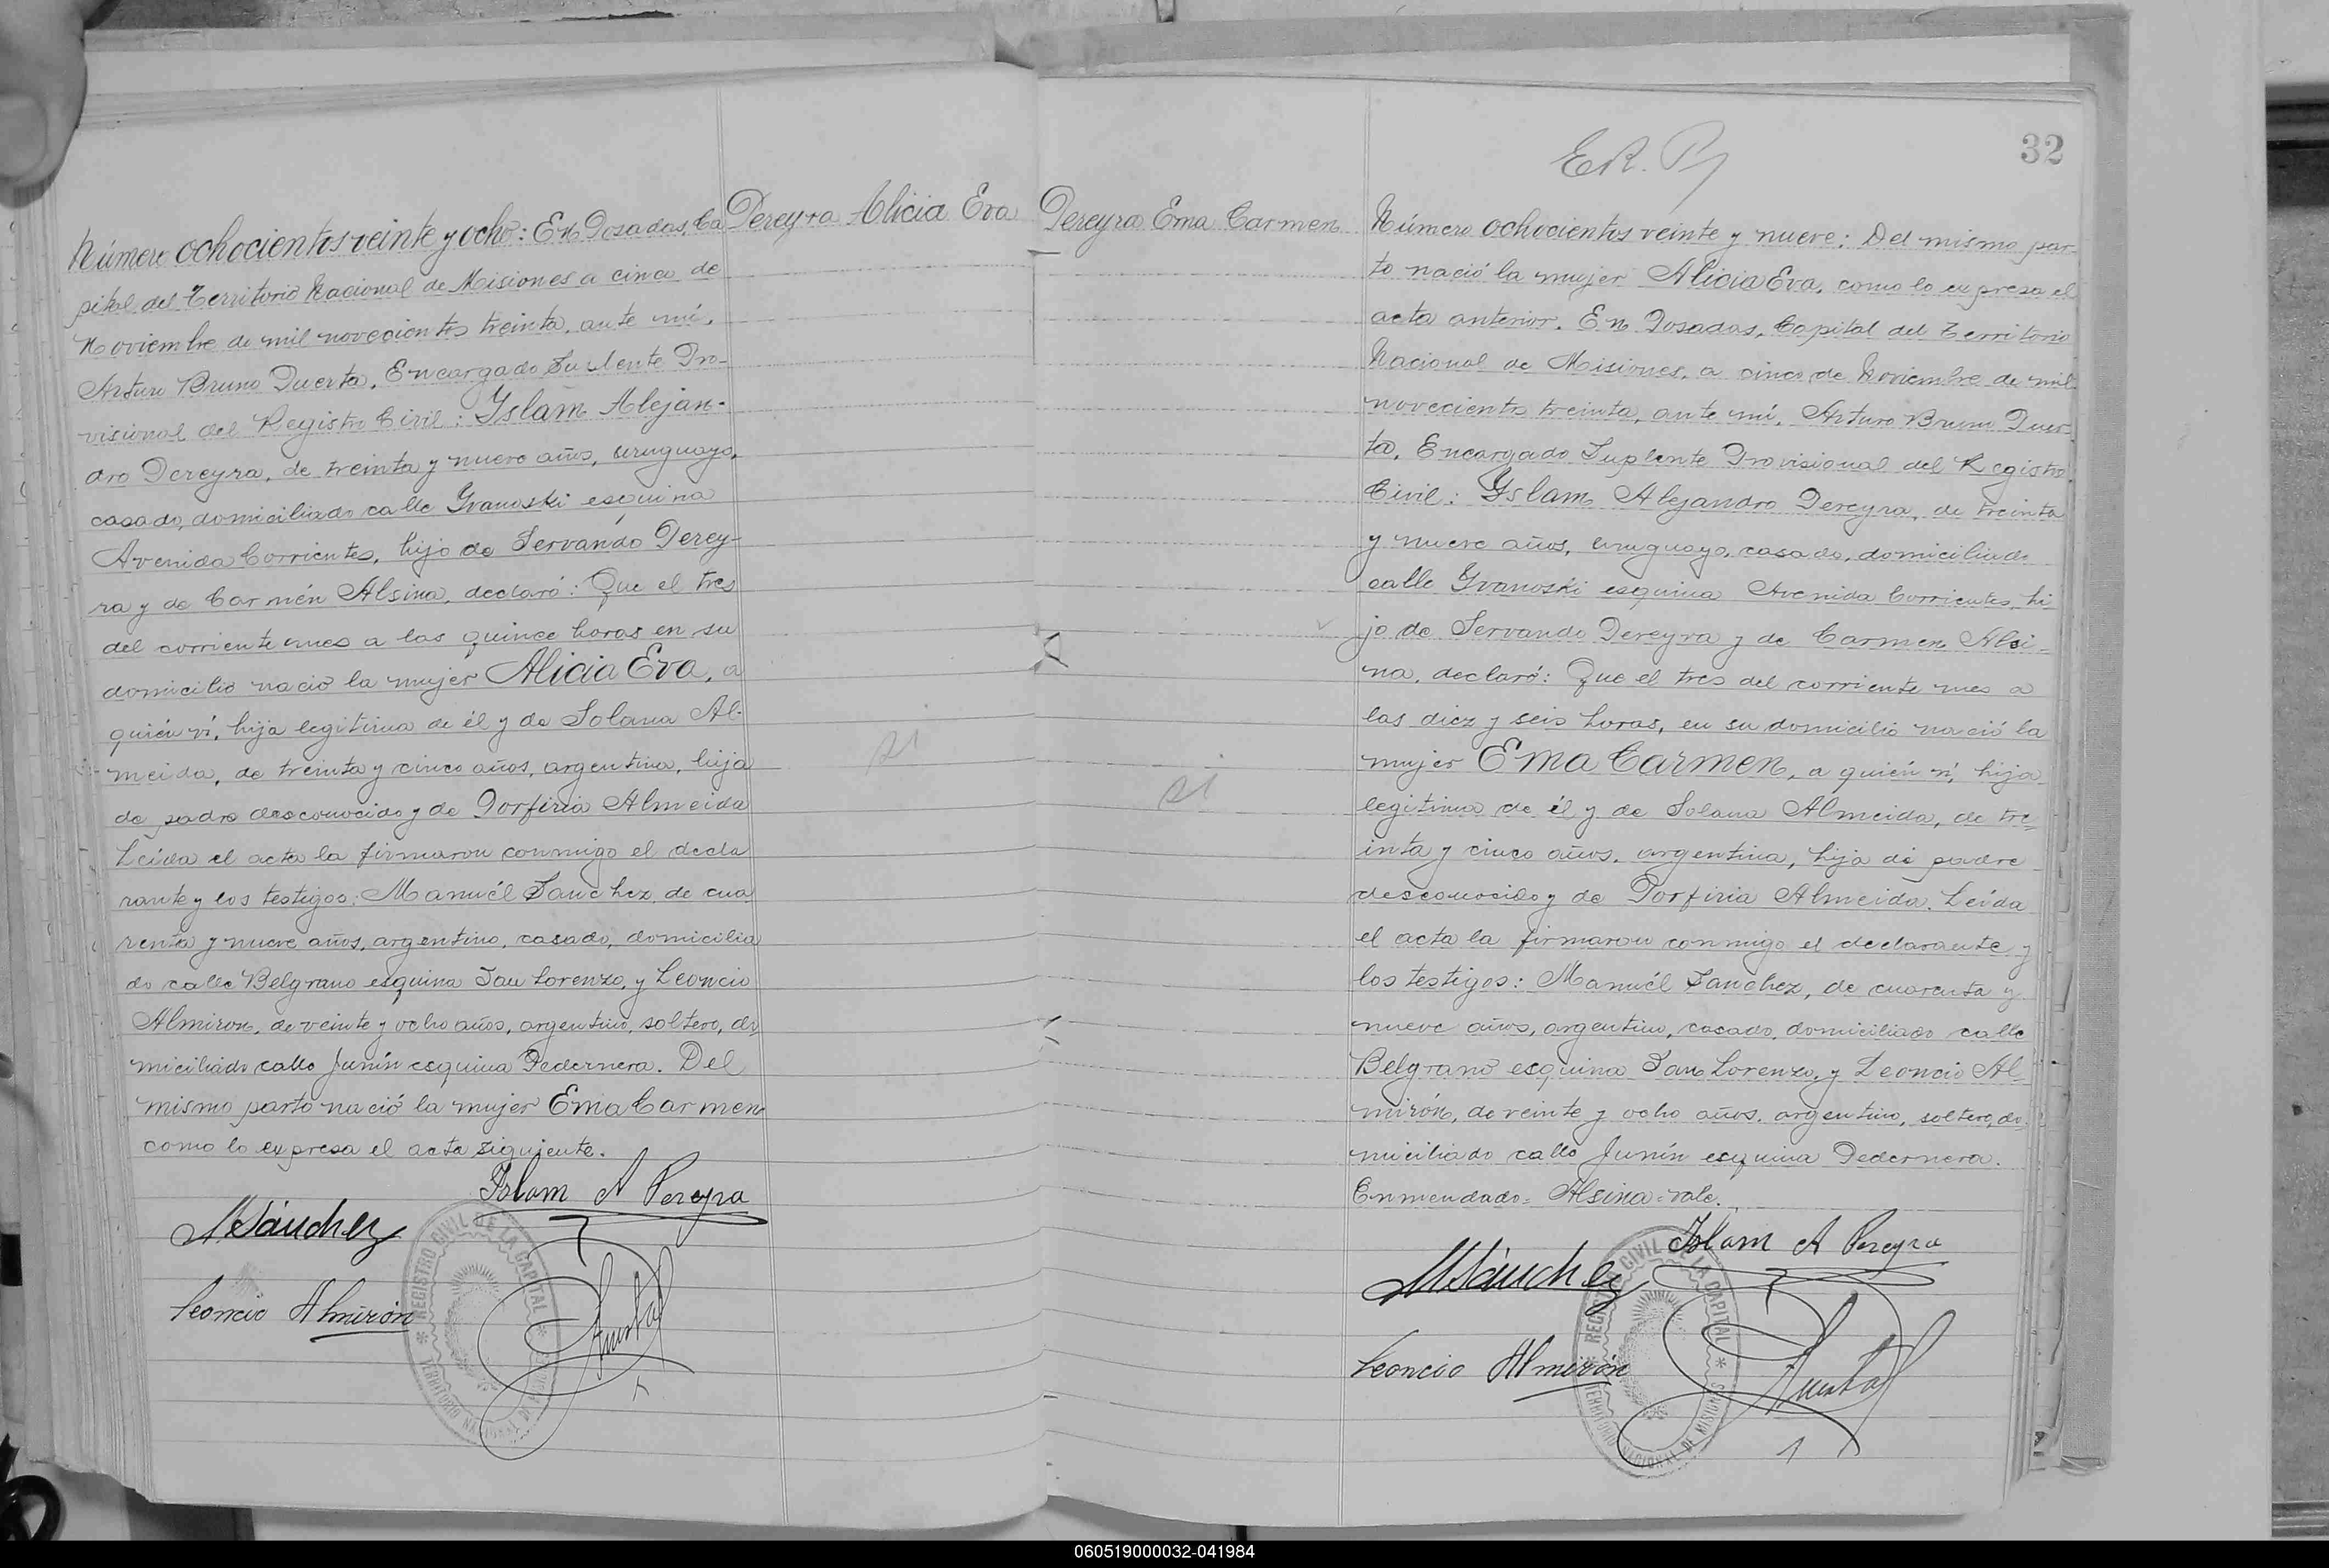 Número ochocientos veinte y ocho: En Posadas, Ca
pital del Territorio Nacional de Misiones a cinco de
Noviembre de mil novecientos treinta, ante mí,
Arturo Bruno Puerta, Encargado Suplente Pro-
visional del Registro Civil: Yslam Alejan-
dro Pereyra, de treinta y nueve años, uruguayo,
casado, domiciliado calle Yvanoski esquina
Avenida Corrientes, hijo de Servando Perey-
ra y de Carmén Alsina, declaró: Que el tres
del corriente mes a las quince horas en su
domicilio nació la mujer Alicia Eva, a
quién ví, hija legitima de él y de Solana Al-
meida, de treinta y cinco años, argentina, hija
de padre desconocido y de Porfiria Almeida
Leída el acta la firmaron conmigo el decla
rante y los testigos: Manuél Sanchez, de cua
renta y nueve años, argentino, casado, domicilia
do calle Belgrano esquina San Lorenzo, y Leoncio
Almiron, de veinte y ocho años, argentino, soltero, do
miciliado calle Junín esquina Pedernera. Del
mismo parto nació la mujer Ema Carmen
como lo expresa el acta siguiente.
Islam A Pereyra
M Sánchez
Leoncio Almirón
Puerta
REGISTRO CIVIL DE LA CAPITAL
TERRITORIO NACIONAL DE MISIONES
Pereyra Alicia Eva
Pereyra Ema Carmen
32
Número ochocientos veinte y nueve: Del mismo par-
to nació la mujer Alicia Eva, como lo expresa el
acta anterior. En Posadas, Capital del Territorio
Nacional de Misiones, a cinco de Noviembre de mil
novecientos treinta, ante mí, Arturo Bruno Puer-
ta, Encargado Suplente Provisional del Registro
Civil: Yslam Alejandro Pereyra, de treinta
y nueve años, uruguayo, casado, domiciliado
calle Yvanoski esquina Avenida Corrientes, hi
jo de Servando Pereyra y de Carmen Alsi-
na, declaró: Que el tres del corriente mes a
las diez y seis horas, en su domicilio nació la
mujer Ema Carmen, a quién ví, hija
legitima de él y de Solana Almeida, de tre-
inta y cinco años, argentina, hija de padre
desconocido y de Porfiria Almeida. Leída
el acta la firmaron conmigo el declarante y
los testigos: Manuél Sanchez, de cuarenta y
nueve años, argentino, casado, domiciliado calle
Belgrano esquina San Lorenzo, y Leoncio Al-
mirón, de veinte y ocho años, argentino, soltero, do
miciliado calle Junín esquina Pedernera.
Enmendado= Alsina=vale.
Islam A Pereyra
M Sánchez
Leoncio Almirón
Puerta
REGISTRO CIVIL DE LA CAPITAL
TERRITORIO NACIONAL DE MISIONES
060519000032-041984